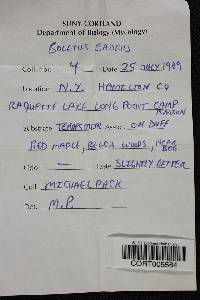 SUNY CORTLAND
Department of Biology (Mycology)
BOLETUS BADIUS
Coll. no: 4 Date 25 JULY 1989
Location N.Y. HAMILTON CO.
RAQUETTE LAKE LONG POINT CAMP
Substrate TERRESTRIAL Assoc. ON DUFF
RED MAPLE, BEECH WOODS, NEAR BOG
Odor — Taste SLIGHTLY BITTER
Coll. MICHAEL PACK
Det. M.P.
CORT005584